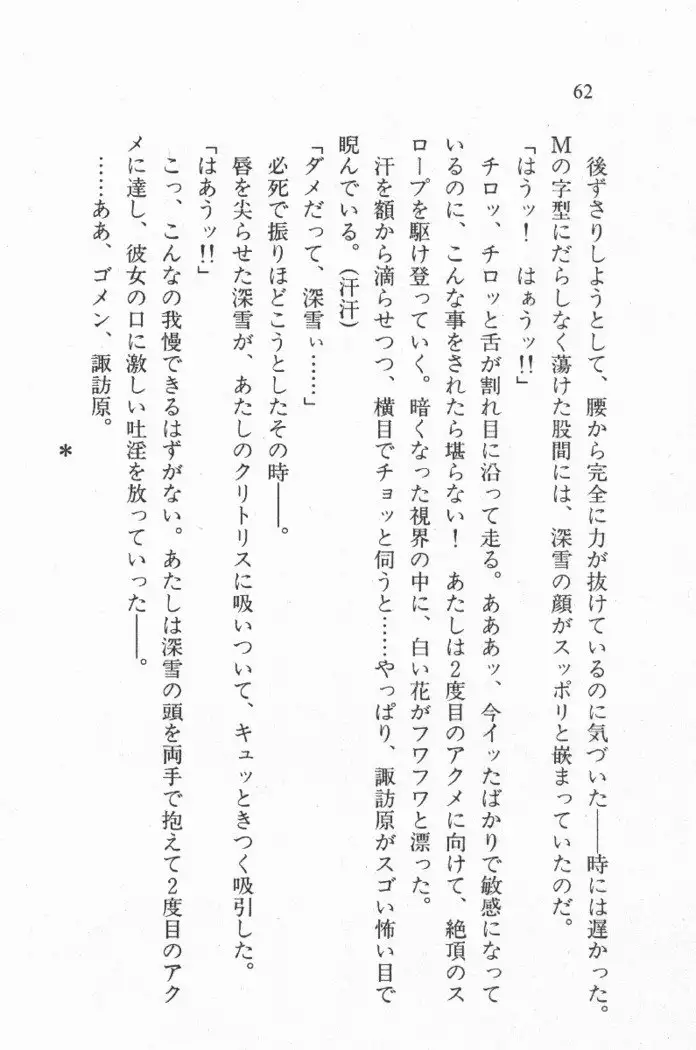 62
後ずさりしようとして、腰から完全に力が抜けているのに気づいた――時には遅かった。
Mの字型にだらしなく蕩けた股間には、深雪の顔がスッポリと嵌まっていたのだ。
「はうッ！　はぁうッ!!」
チロッ、チロッと舌が割れ目に沿って走る。あああッ、今イッたばかりで敏感になって
いるのに、こんな事をされたら堪らない！　あたしは2度目のアクメに向けて、絶頂のス
ロープを駆け登っていく。暗くなった視界の中に、白い花がフワフワと漂った。
汗を額から滴らせつつ、横目でチョッと伺うと……やっぱり、諏訪原がスゴい怖い目で
睨んでいる。（汗汗）
「ダメだって、深雪ぃ……」
必死で振りほどこうとしたその時――。
唇を尖らせた深雪が、あたしのクリトリスに吸いついて、キュッときつく吸引した。
「はあうッ!!」
こっ、こんなの我慢できるはずがない。あたしは深雪の頭を両手で抱えて2度目のアク
メに達し、彼女の口に激しい吐淫を放っていった――。
……ああ、ゴメン、諏訪原。
＊